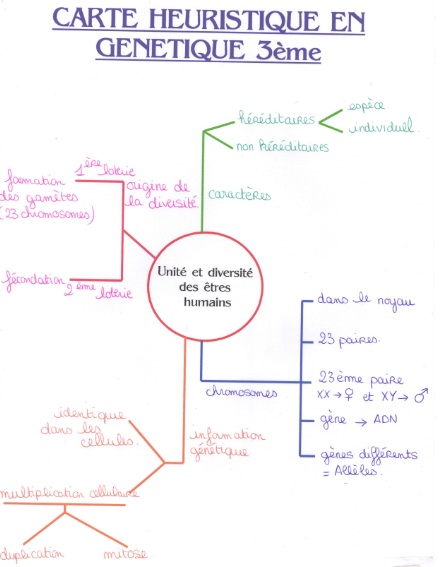 CARTE HEURISTIQUE EN
GENETIQUE 3ème
héréditaires
espèce
individuel.
non héréditaires
caractères
1ère loterie
formation
des gamètes
(23 chromosomes)
origine de
la diversité.
fécondation
2ème loterie
Unité et diversité
des êtres
humains
dans le noyau
23 paires.
23ème paire
XX → ♀ et XY → ♂
gène → ADN
gènes différents
= Allèles.
chromosomes
identique
dans les
cellules.
information
génétique
multiplication cellulaire
duplication
mitose